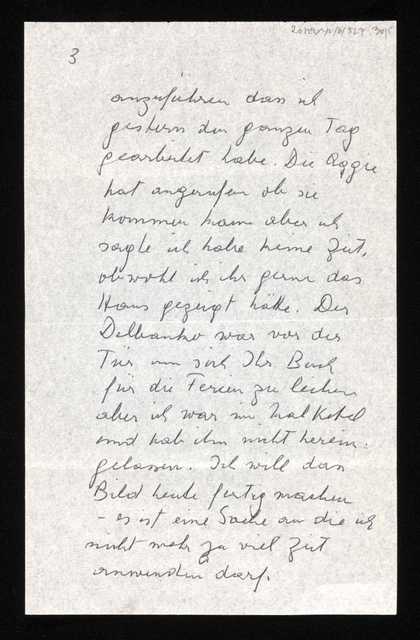 3
anzuführen dass ich
gestern den ganzen Tag
gearbeitet habe. Die
hat angerufen ob sie
kommen kann aber ich
sagte ich habe keine Zeit,
obwohl ich ihr gerne das
Haus gezeigt hätte. Der
Delbanko war vor der
Tür um sich Ihr Buch
für die Ferien zu leihen
aber ich war im
und hab ihn nicht herein-
gelassen. Ich will das
Bild heute fertig machen
– es ist eine Sache an die ich
nicht mehr zu viel Zeit
anwenden darf.